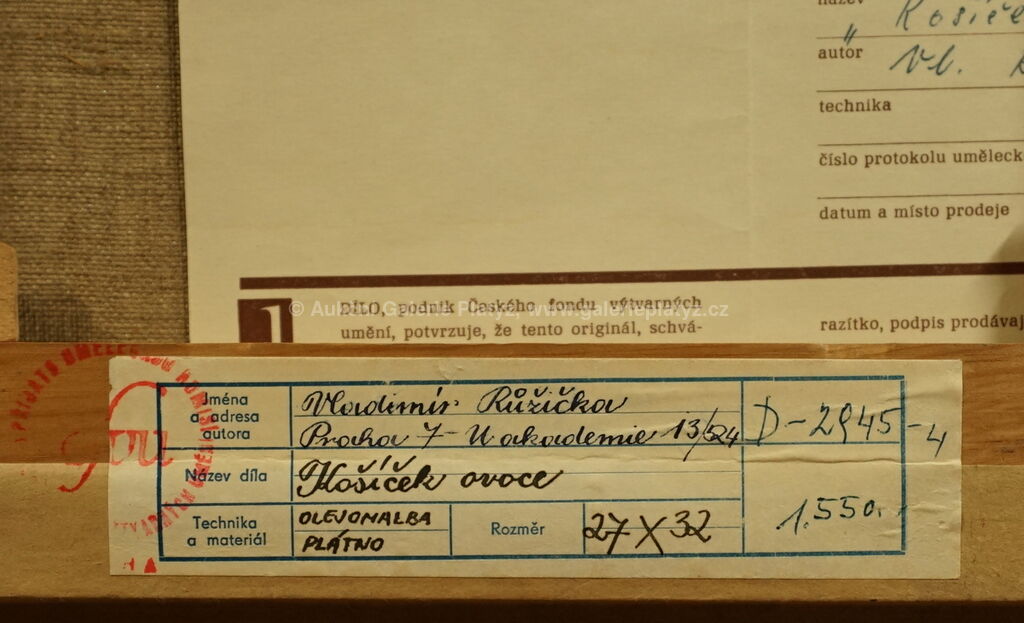 název Košíče
autor Vl.
technika
číslo protokolu uměleck
datum a místo prodeje
1
DÍLO, podnik Českého fondu výtvarných
umění, potvrzuje, že tento originál, schvá-
razítko, podpis prodávaj
© Aukce Galerie Platýz, www.galerieplatyz.cz
PŘIJATO UMĚLECKOU KOMISÍ
Jména a adresa autora
Vladimír Růžička
Praha 7 - U akademie 13/524
D-2945-4
Název díla
Košíček ovoce
Technika a materiál
OLEJOMALBA
PLÁTNO
Rozměr
27 X 32
1.550.-